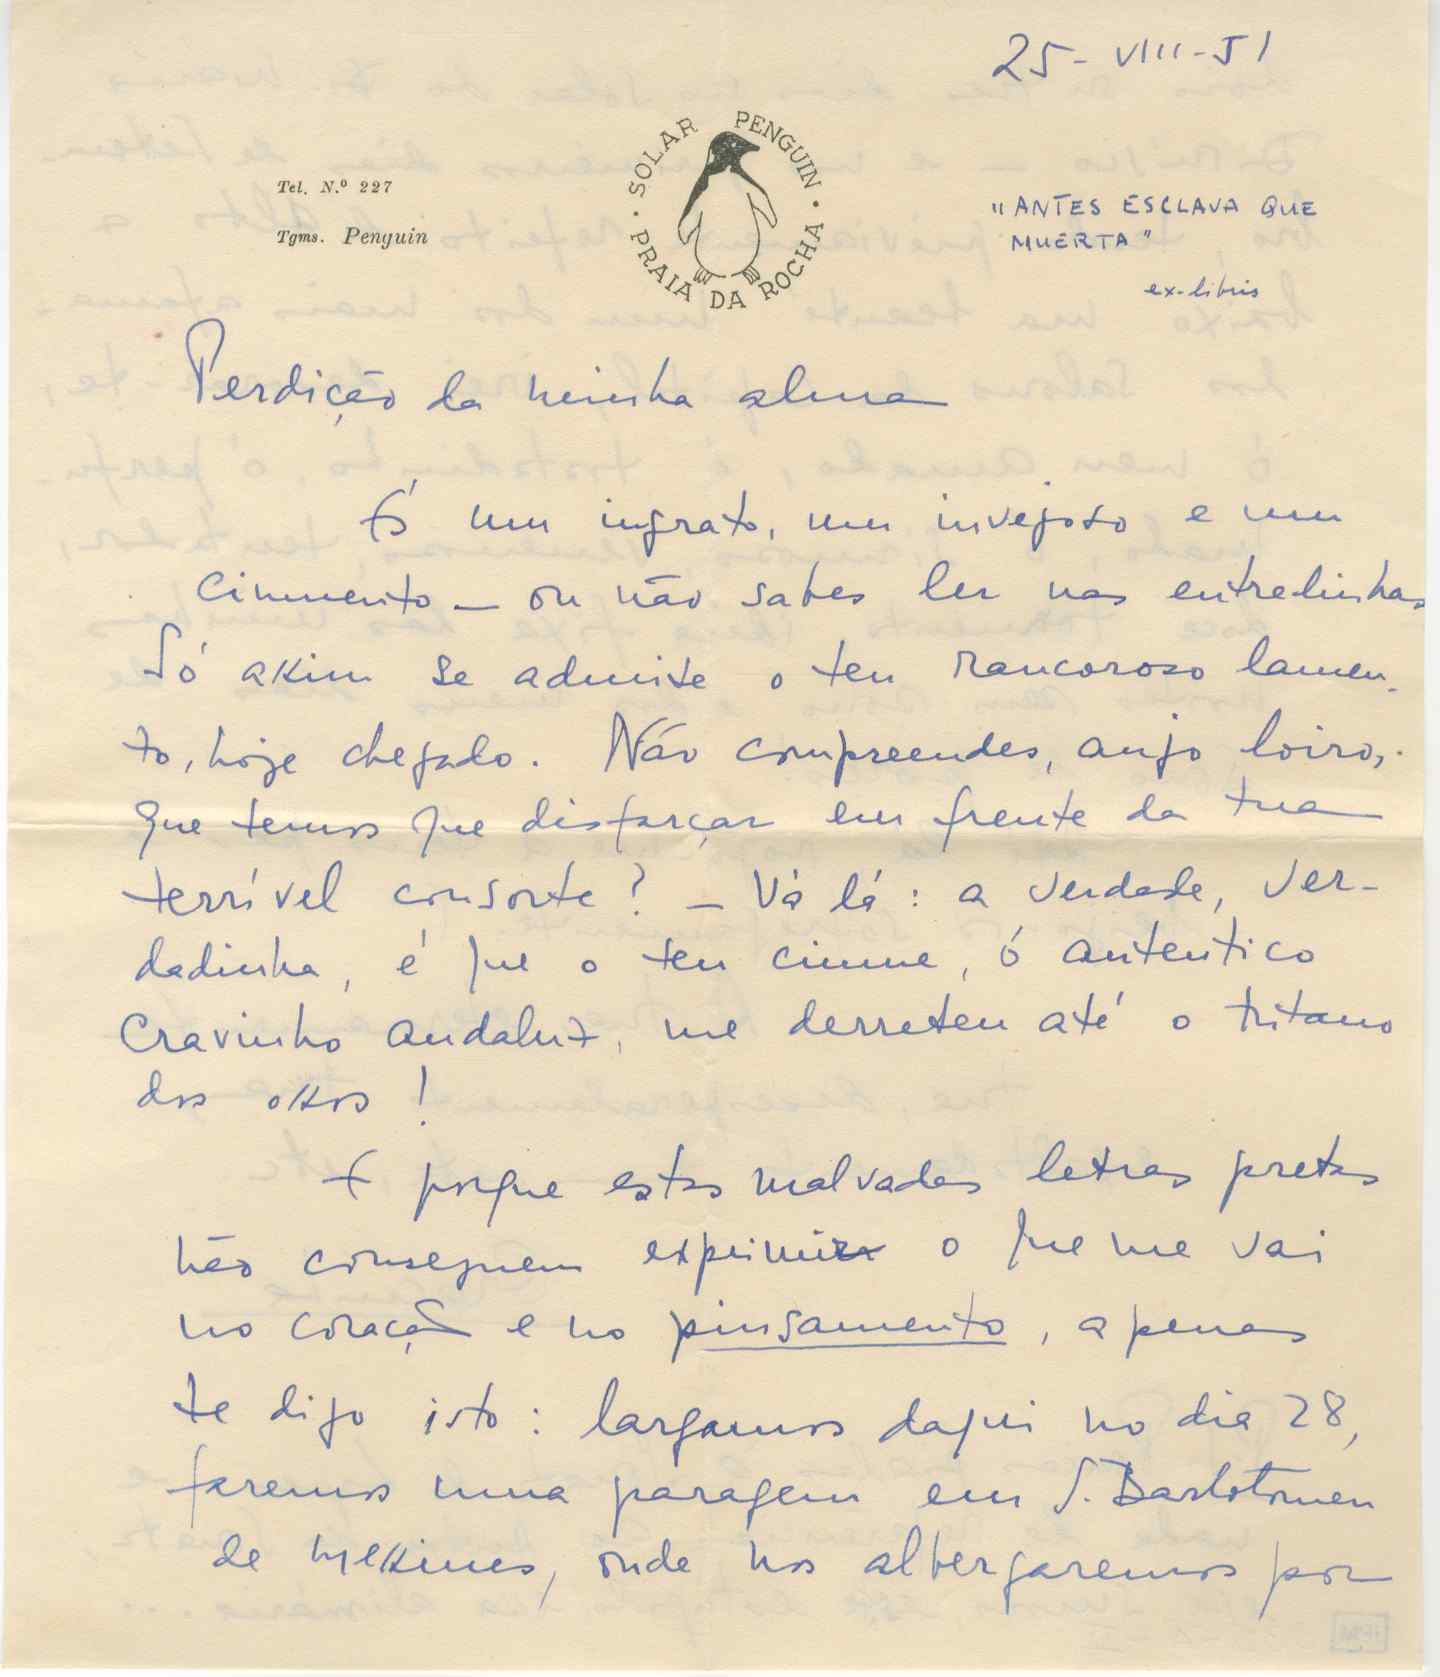 25-VIII-51
SOLAR PENGUIN · PRAIA DA ROCHA ·
Tel. N.º 227
Tgms. Penguin
"ANTES ESCLAVA QUE
MUERTA"
ex-libris
Perdição da minha alma
És um ingrato, um invejoso e um
ciumento — ou não sabes ler nas entrelinhas
Só assim se admite o teu rancoroso lamen-
to, hoje chegado. Não compreendes, anjo loiro,
que temos que disfarçar em frente da tua
terrível consorte? — Vá lá: a verdade, ver-
dadinha, é que o teu ciume, ó autentico
Cravinho andaluz, me derreteu até o tutano
dos ossos!
E porque estas malvadas letras pretas
não conseguem exprimir o que me vai
no coração e no pinsamento, apenas
te digo isto: largamos daqui no dia 28,
faremos uma paragem em S. Bartolomeu
de Messines, onde nos albergaremos por